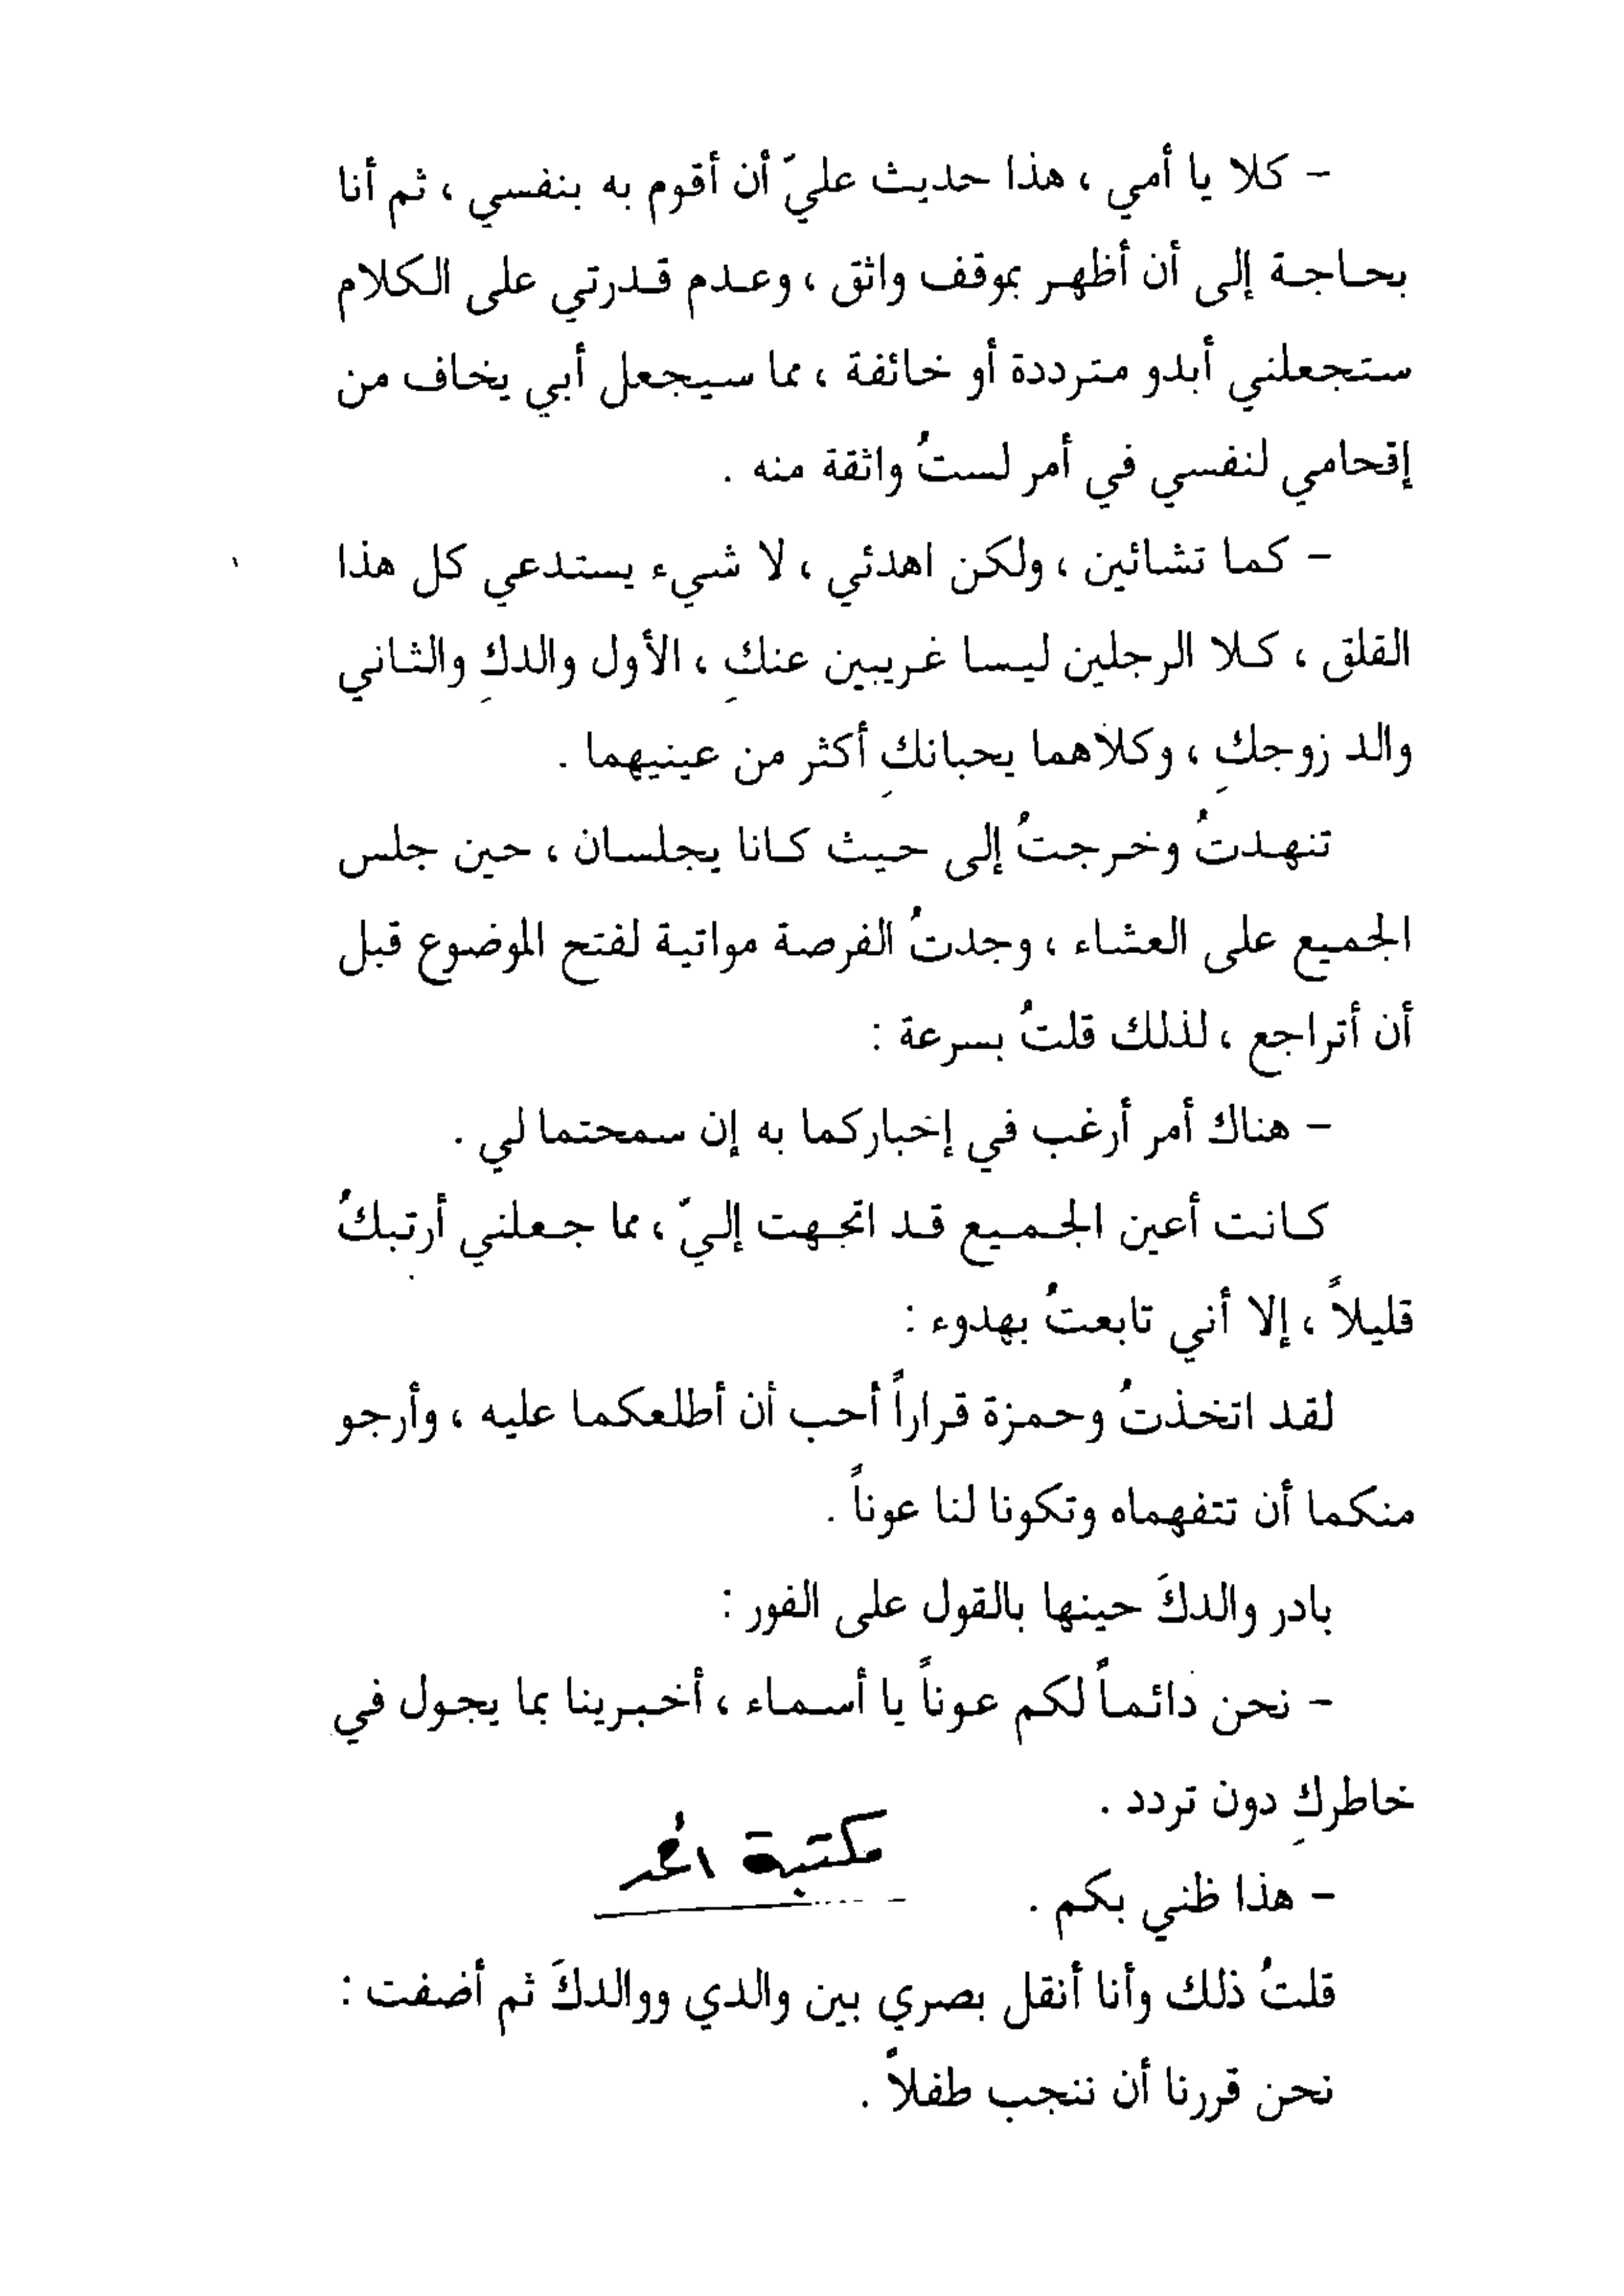 - كلا يا أمي ، هذا حديث عليّ أن أقوم به بنفسي ، ثم أنا
بحاجة إلى أن أظهر بموقف واثق ، وعدم قدرتي على الكلام
ستجعلني أبدو مترددة أو خائفة ، مما سيجعل أبي يخاف من
إقحامي لنفسي في أمر لستُ واثقة منه .
- كما تشائين ، ولكن اهدئي ، لا شيء يستدعي كل هذا
القلق ، كلا الرجلين ليسا غريبين عنكِ ، الأول والدكِ والثاني
والد زوجكِ ، وكلاهما يحبانكِ أكثر من عينيهما .
تنهدتُ وخرجتُ إلى حيث كانا يجلسان ، حين جلس
الجميع على العشاء ، وجدتُ الفرصة مواتية لفتح الموضوع قبل
أن أتراجع ، لذلك قلتُ بسرعة :
- هناك أمر أرغب في إخباركما به إن سمحتما لي .
كانت أعين الجميع قد اتجهت إليّ ، مما جعلني أرتبكُ
قليلاً ، إلا أني تابعتُ بهدوء :
لقد اتخذتُ وحمزة قراراً أحب أن أطلعكما عليه ، وأرجو
منكما أن تتفهماه وتكونا لنا عوناً .
بادر والدكَ حينها بالقول على الفور :
- نحن دائماً لكم عوناً يا أسماء ، أخبرينا بما يجول في
خاطركِ دون تردد .
مكتبة
- هذا ظني بكم .
قلتُ ذلك وأنا أنقل بصري بين والدي ووالدكَ ثم أضفت :
نحن قررنا أن ننجب طفلاً .